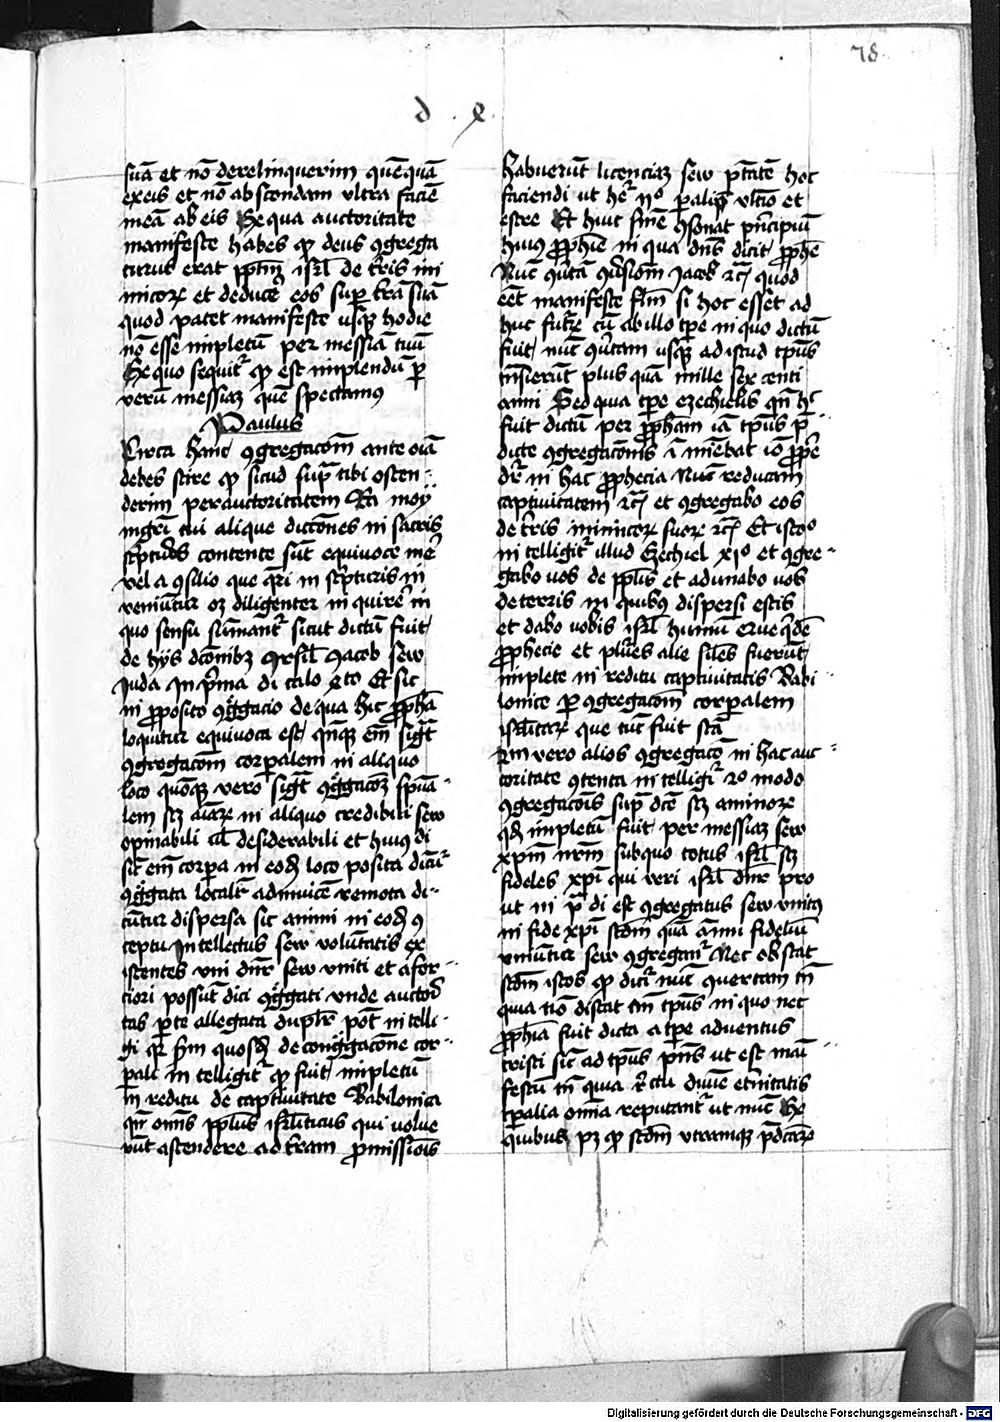 78
d . e
suā et nō derelinquerim quēquā
ex eis et nō abscondam vltra faciē
meā ab eis Ex qua auctoritate
manifeste habes ꝙ deus ꝯgrega
turus erat pplm̄ isrl̄ de tr̄is ini
micoꝝ et deduce̓ eos sup̱ trā suā
quod patet manifeste vsqꝫ hodie
nō esse impletū per messiā tuū
Ex quo sequit᷑ ꝙ est implendū ꝑ
verū messiaꝫ quē spectamꝰ
Paulus
Circa hanc ꝯgregacōm̄ ante oīa
debes scire ꝙ sicud supͣ tibi osten
derim per auctoritatem Ra moy
mgrī tui alique diccōnes in sacris
sc̓pturis contente sūt equiuoce
vel a ꝯsilio que qr̄i in sc̓pturis in
veniūtur oꝫ diligenter inquire̓ in
quo sensu sumant᷑ sicut dictū fuit
de hijs dcōnibꝫ isrl̄ Jacob sew
Juda In p̓ma di calo
in ꝓposito ꝯg̓gacio de qua hic ꝓphā
loquitur equiuoca est qn̄qꝫ em̄ sigt̄
ꝯgregacōm̄ corꝑalem in aliquo
loco quōqꝫ vero sigt̄ ꝯg̓gacōꝫ spūa
lem scꝫ aīaꝝ in aliquo credibili sew
opinabili ul̄ desiderabili et huiꝰ di
sic̄ em̄ corꝑa in eodꝫ loco posita dicūt᷑
ꝯg̓gata localr̄ adinuicē remota di
cūtur dispersa sic animi in eodꝫ ꝯ
ceptu intellectus sew volūtatis ex
istentes vni dnr̄ sew vniti et a for
ciori possūt dici ꝯg̓gati vnde auctoī
tas ꝑ te allegata duplr̄ pōt intelli
gi qꝛ scd̄m quosdꝫ de cong̓gacōne cor
ꝑali intelligit᷑ ꝙ fuit impletū
in reditu de captiuitate Babilonica
qn̄ om̄s pplūs isrl̄iticus qui volue
rūt ascendere ad trām ꝓmissiōis
habuerūt licenciaꝫ sew ptātē hoc
faciendi ut hēt᷑ ijº ꝑalip̄ vltīo et
esdre Et huic sinē ꝯsonat pn̓cipiū
huiꝰ ꝓphīe in qua dn̄s dicit ꝓphē
Nūc qr̄tā ꝯūsiom̄ Jacob ꝛcꝫ quod
eēt manifeste flm̄ si hoc esset ad
huc futur̄ cū ab illo tꝑe in quo dictū
fuit nūc qr̄tam vsqꝫ ad istud tp̄us
trn̄sierūt plus quā mille sex centi
anni Sed quia tꝑe ezechielis qn̄ hͨ
fuit dictū per ꝓpham iā tp̄us p̄
dicte ꝯgregacōnis īminēbat iō ꝓp̓e
dr̄ in hac ꝓphecia Nūc reducam
captiuitatem ꝛcꝫ et ꝯgregabo eos
de tr̄is inimicoꝝ suoꝝ ꝛcꝫ Et isto
intelligit᷑ illud Ezechiel xiº et ꝯgre
gabo uos de pplīs et adunabo uos
de terris in quibꝰ dispersi estis
et dabo uobis isrl̄ humū que q̇dē
ꝓphecie et plūes alie siles fuerūt
implete in reditu captiuitatis Babi
lonice ꝑ ꝯgregacōm̄ corꝑalem
isrl̄itaꝝ que tūc fuit fc̄a
Scd̄m vero alios ꝯgregacō in hac auc
toritate ꝯtenta intelligit᷑ 2º modo
ꝯgregacōis supͣ dcē scꝫ animoꝝ
qd̄ impletū fuit per messiaꝫ sew
xpm̄ nrm̄ sub quo totus isrl̄ scꝫ
fideles xpī qui veri isrl̄ dnr̄ pro
ut in pͣ di est ꝯgregatus sew vnitꝰ
in fide xpī scdm̄ quā āimi fideliū
vniūtur sew ꝯgregant᷑ Nec obstat
scdm̄ istos ꝙ dicit᷑ nūc quartam tn̄
quia nō distat tm̄ tp̄us in quo hec
ꝓphīa fuit dicta a tꝑe aduentus
cristi sic̄ ad tp̄us pn̄s ut est mai
festū tn̄ quia rc̄tu diuīe etn̄itatis
tꝑalia om̄ia reputant᷑ ut nūc Ex
quibus pꝫ ꝙ scdm̄ vtramqꝫ p̄dcāꝝ
Digitalisierung gefördert durch die Deutsche Forschungsgemeinschaft - DFG